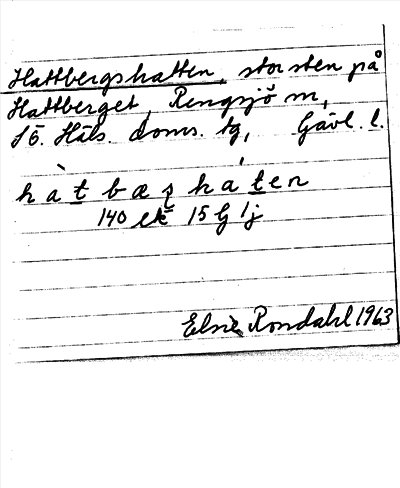 Hattbergshatten, stor sten på
Hattberget, Rengsjö sn,
Sö. Häls. doms. tg, Gävl. l.
hàtbæʂháten
140 ek 15 G 1j
Elsie Rondahl 1963